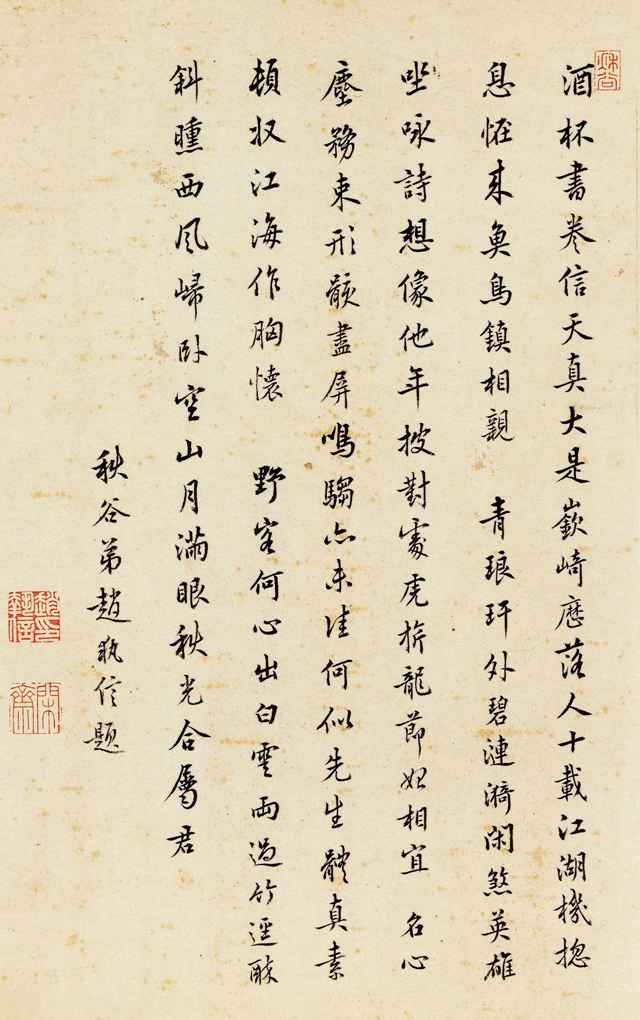 酒杯書卷信天真大是嶔崎歷落人十載江湖機揔
息恠來魚鳥鎮相親 青琅玕外碧漣漪閑煞英雄
坐咏詩想像他年披對處虎旂龍節相宜 名心
塵務束形骸盡屏鳴騶亦未佳何似先生體真素
頓收江海作胸懷 野客何心出白雲雨過竹逕
斜曛西風歸卧空山月滿眼秋光合屬君
秋谷弟趙執信題
秋谷
趙執信印